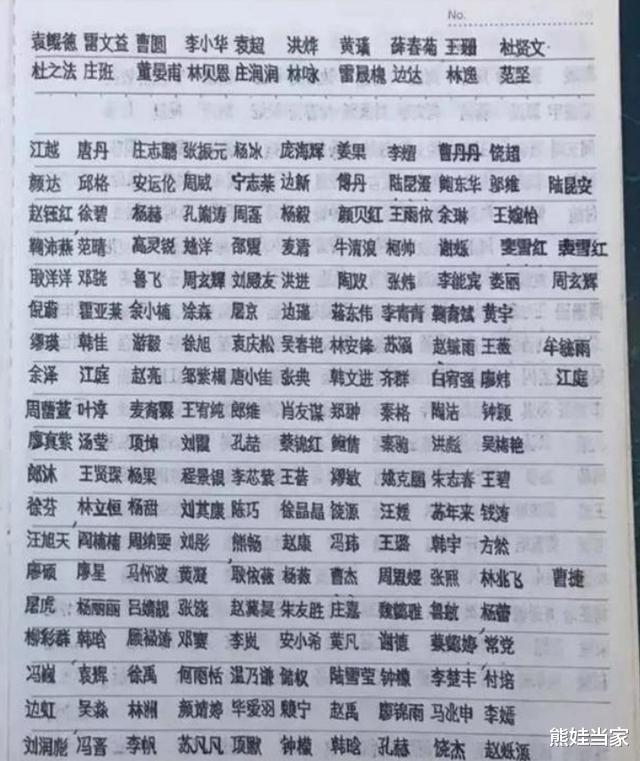 No.
袁鲲德 雷文益 曹圆 李小华 袁超 洪烨 黄瑾 薛春菊 王珊 杜贤文
杜之法 庄班 董晏甫 林贝恩 庄润润 林咏 雷晟槐 边达 林逸 范坚
江越 唐丹 庄志鹏 张振元 杨冰 庞海辉 姜果 李熠 曹丹丹 饶超
颜达 邱格 安运伦 周威 宁志莱 边新 傅丹 陆昆澄 鲍东华 邬维 陆昆安
赵钰红 徐碧 杨赫 孔湍涛 周磊 杨毅 颜贝红 王雨依 余琳 王嫁怡
鞠沛燕 范晴 高灵锐 邵盟 麦清 牛清浪 柯帅 谢烁 裴雪红
耿洋洋 邓骁 鲁飞 周玄辉 刘殿友 洪进 陶玟 张炜 李能宾 娄丽 周玄辉
倪蔚 霍亚莱 余小楠 涂淼 屠京 边瑾 蒋东伟 李青青 鞠育斌 黄宇
缪瑛 韩佳 游毅 徐旭 袁庆松 吴春艳 林安锋 苏涵 赵毓雨 王薇 牟毓雨
余泽 江庭 赵亮 邹繁榈 唐小佳 张典 韩文进 齐群 白宥强 廖炜 江庭
周蕾萱 叶淳 麦裔霖 王宥纯 郎维 肖友谋 郑翀 秦格 陶洁 钟颖
廖真紫 汤莹 项坤 刘霞 孔喆 蔡锦红 鲍倩 秦驰 洪彪 吴梅艳
郎沐 王贤琛 杨果 程景银 李芯紫 王荟 缪敏 姚克鹏 朱志春 王碧
徐芬 林立恒 杨甜 刘其康 陈巧 徐晶晶 饶源 汪媛 苏年来 钱涛
汪旭天 阎楠楠 周纳要 刘彤 熊畅 赵康 冯玮 王璐 韩宇 方然
廖硕 廖星 马怀波 黄凝 耿依薇 杨薇 曹杰 周盟媛 张熙 林兆飞 曹捷
屠虎 杨丽丽 吕靖靓 张饶 赵冀昊 朱友胜 庄嘉 魏懿雅 鲁敏 杨蕾
柳彩群 韩晗 顾禄涛 邓寰 李岚 安小希 黄凡 谢德 蔡懿婷 常党
冯巍 袁辉 徐禹 何雨恬 温乃谦 储权 陆雪莹 钟檬 李楚丰 付培
边虹 吴淼 林洲 颜婧婷 毕爱羽 赖宁 赵禹 廖锦雨 马兆申 李嫣
刘润彪 冯晋 李帆 苏凡凡 项歆 钟檬 韩晗 孔赫 饶杰 赵烁源
熊娃当家